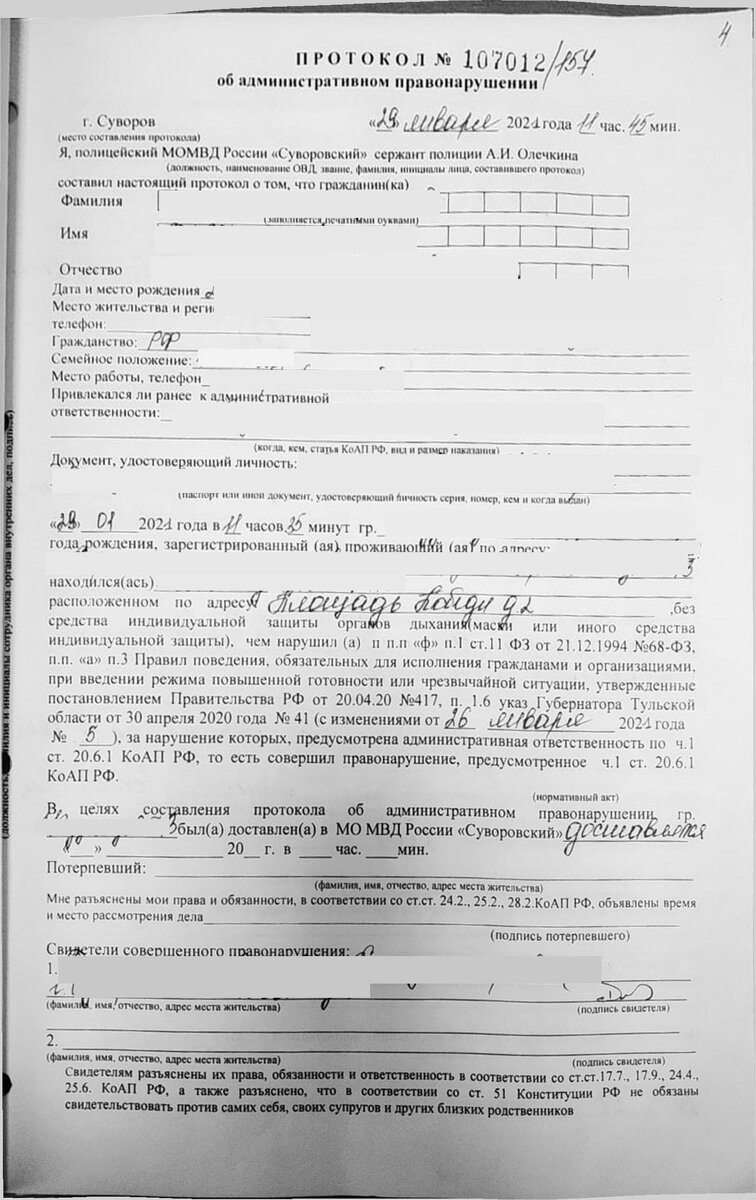 4
ПРОТОКОЛ № 107012/157
об административном правонарушении
г. Суворов «29» января 2021 года 11 час. 45 мин.
(место составления протокола)
Я, полицейский МОМВД России «Суворовский» сержант полиции А.И. Олечкина
(должность, наименование ОВД, звание, фамилия, инициалы лица, составившего протокол)
составил настоящий протокол о том, что гражданин(ка)
Фамилия
(заполняется печатными буквами)
Имя
Отчество
Дата и место рождения
Место жительства и реги
телефон:
Гражданство: РФ
Семейное положение:
Место работы, телефон
Привлекался ли ранее к административной
ответственности:
(когда, кем, статья КоАП РФ, вид и размер наказания)
Документ, удостоверяющий личность:
(паспорт или иной документ, удостоверяющий личность серия, номер, кем и когда выдан)
«29» 01 2021 года в 11 часов 35 минут гр.
года рождения, зарегистрированный (ая), проживающий (ая) по адресу:
3
находился(ась)
расположенном по адресу Площадь Победы д 2 ,без
средства индивидуальной защиты органов дыхания(маски или иного средства
индивидуальной защиты), чем нарушил (а) п п.п «ф» п.1 ст.11 ФЗ от 21.12.1994 №68-ФЗ,
п.п. «а» п.3 Правил поведения, обязательных для исполнения гражданами и организациями,
при введении режима повышенной готовности или чрезвычайной ситуации, утвержденные
постановлением Правительства РФ от 20.04.20 №417, п. 1.6 указ Губернатора Тульской
области от 30 апреля 2020 года № 41 (с изменениями от 26 января 2021 года
№ 5), за нарушение которых, предусмотрена административная ответственность по ч.1
ст. 20.6.1 КоАП РФ, то есть совершил правонарушение, предусмотренное ч.1 ст. 20.6.1
КоАП РФ.
(нормативный акт)
В целях составления протокола об административном правонарушении гр.
был(а) доставлен(а) в МО МВД России «Суворовский» доставлялся
« » 20 г. в час. мин.
Потерпевший:
(фамилия, имя, отчество, адрес места жительства)
Мне разъяснены мои права и обязанности, в соответствии со ст.ст. 24.2., 25.2., 28.2.КоАП РФ, объявлены время
и место рассмотрения дела
(подпись потерпевшего)
Свидетели совершенного правонарушения:
1.
(фамилия, имя, отчество, адрес места жительства) (подпись свидетеля)
2.
(фамилия, имя, отчество, адрес места жительства) (подпись свидетеля)
Свидетелям разъяснены их права, обязанности и ответственность в соответствии со ст.ст.17.7., 17.9., 24.4.,
25.6. КоАП РФ, а также разъяснено, что в соответствии со ст. 51 Конституции РФ не обязаны
свидетельствовать против самих себя, своих супругов и других близких родственников